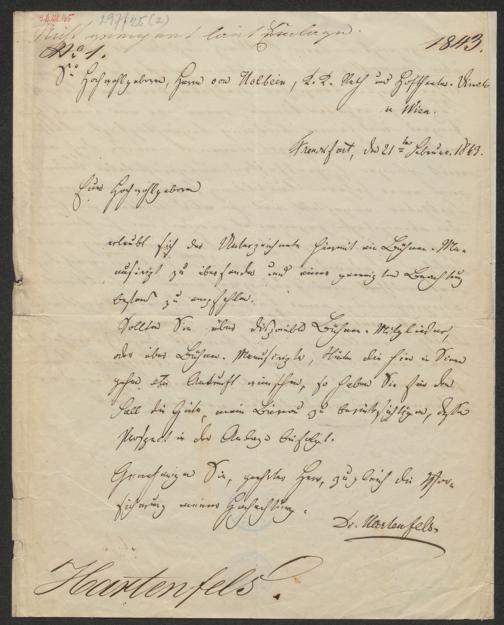 297/45(2)
1843.
No 1.
Sr. Hochwohlgeboren, Herrn von Holbein, K. K. Rath und Hoftheater-Direktor
in Wien.
Frankfurt, den 21ten Februar 1843.
Euer Hochwohlgeboren
erlaubt sich der Unterzeichnete hiermit ein Bühnen-Ma-
nuscript zu übersenden und einer geneigten Beachtung
bestens zu empfehlen.
Sollten Sie über disponible Bühnen-Mitglieder,
oder über Bühnen-Manuscripte, Stücke die hier in Scene
gehen etc. Auskunft wünschen, so haben Sie für den
Fall die Güte, mein Büreau zu berücksichtigen, dessen
Prospect in der Anlage beifolgt.
Genehmigen Sie, geehrter Herr, zugleich die Ver-
sicherung meiner Hochachtung.
Dr. Hartenfels
Hartenfels.